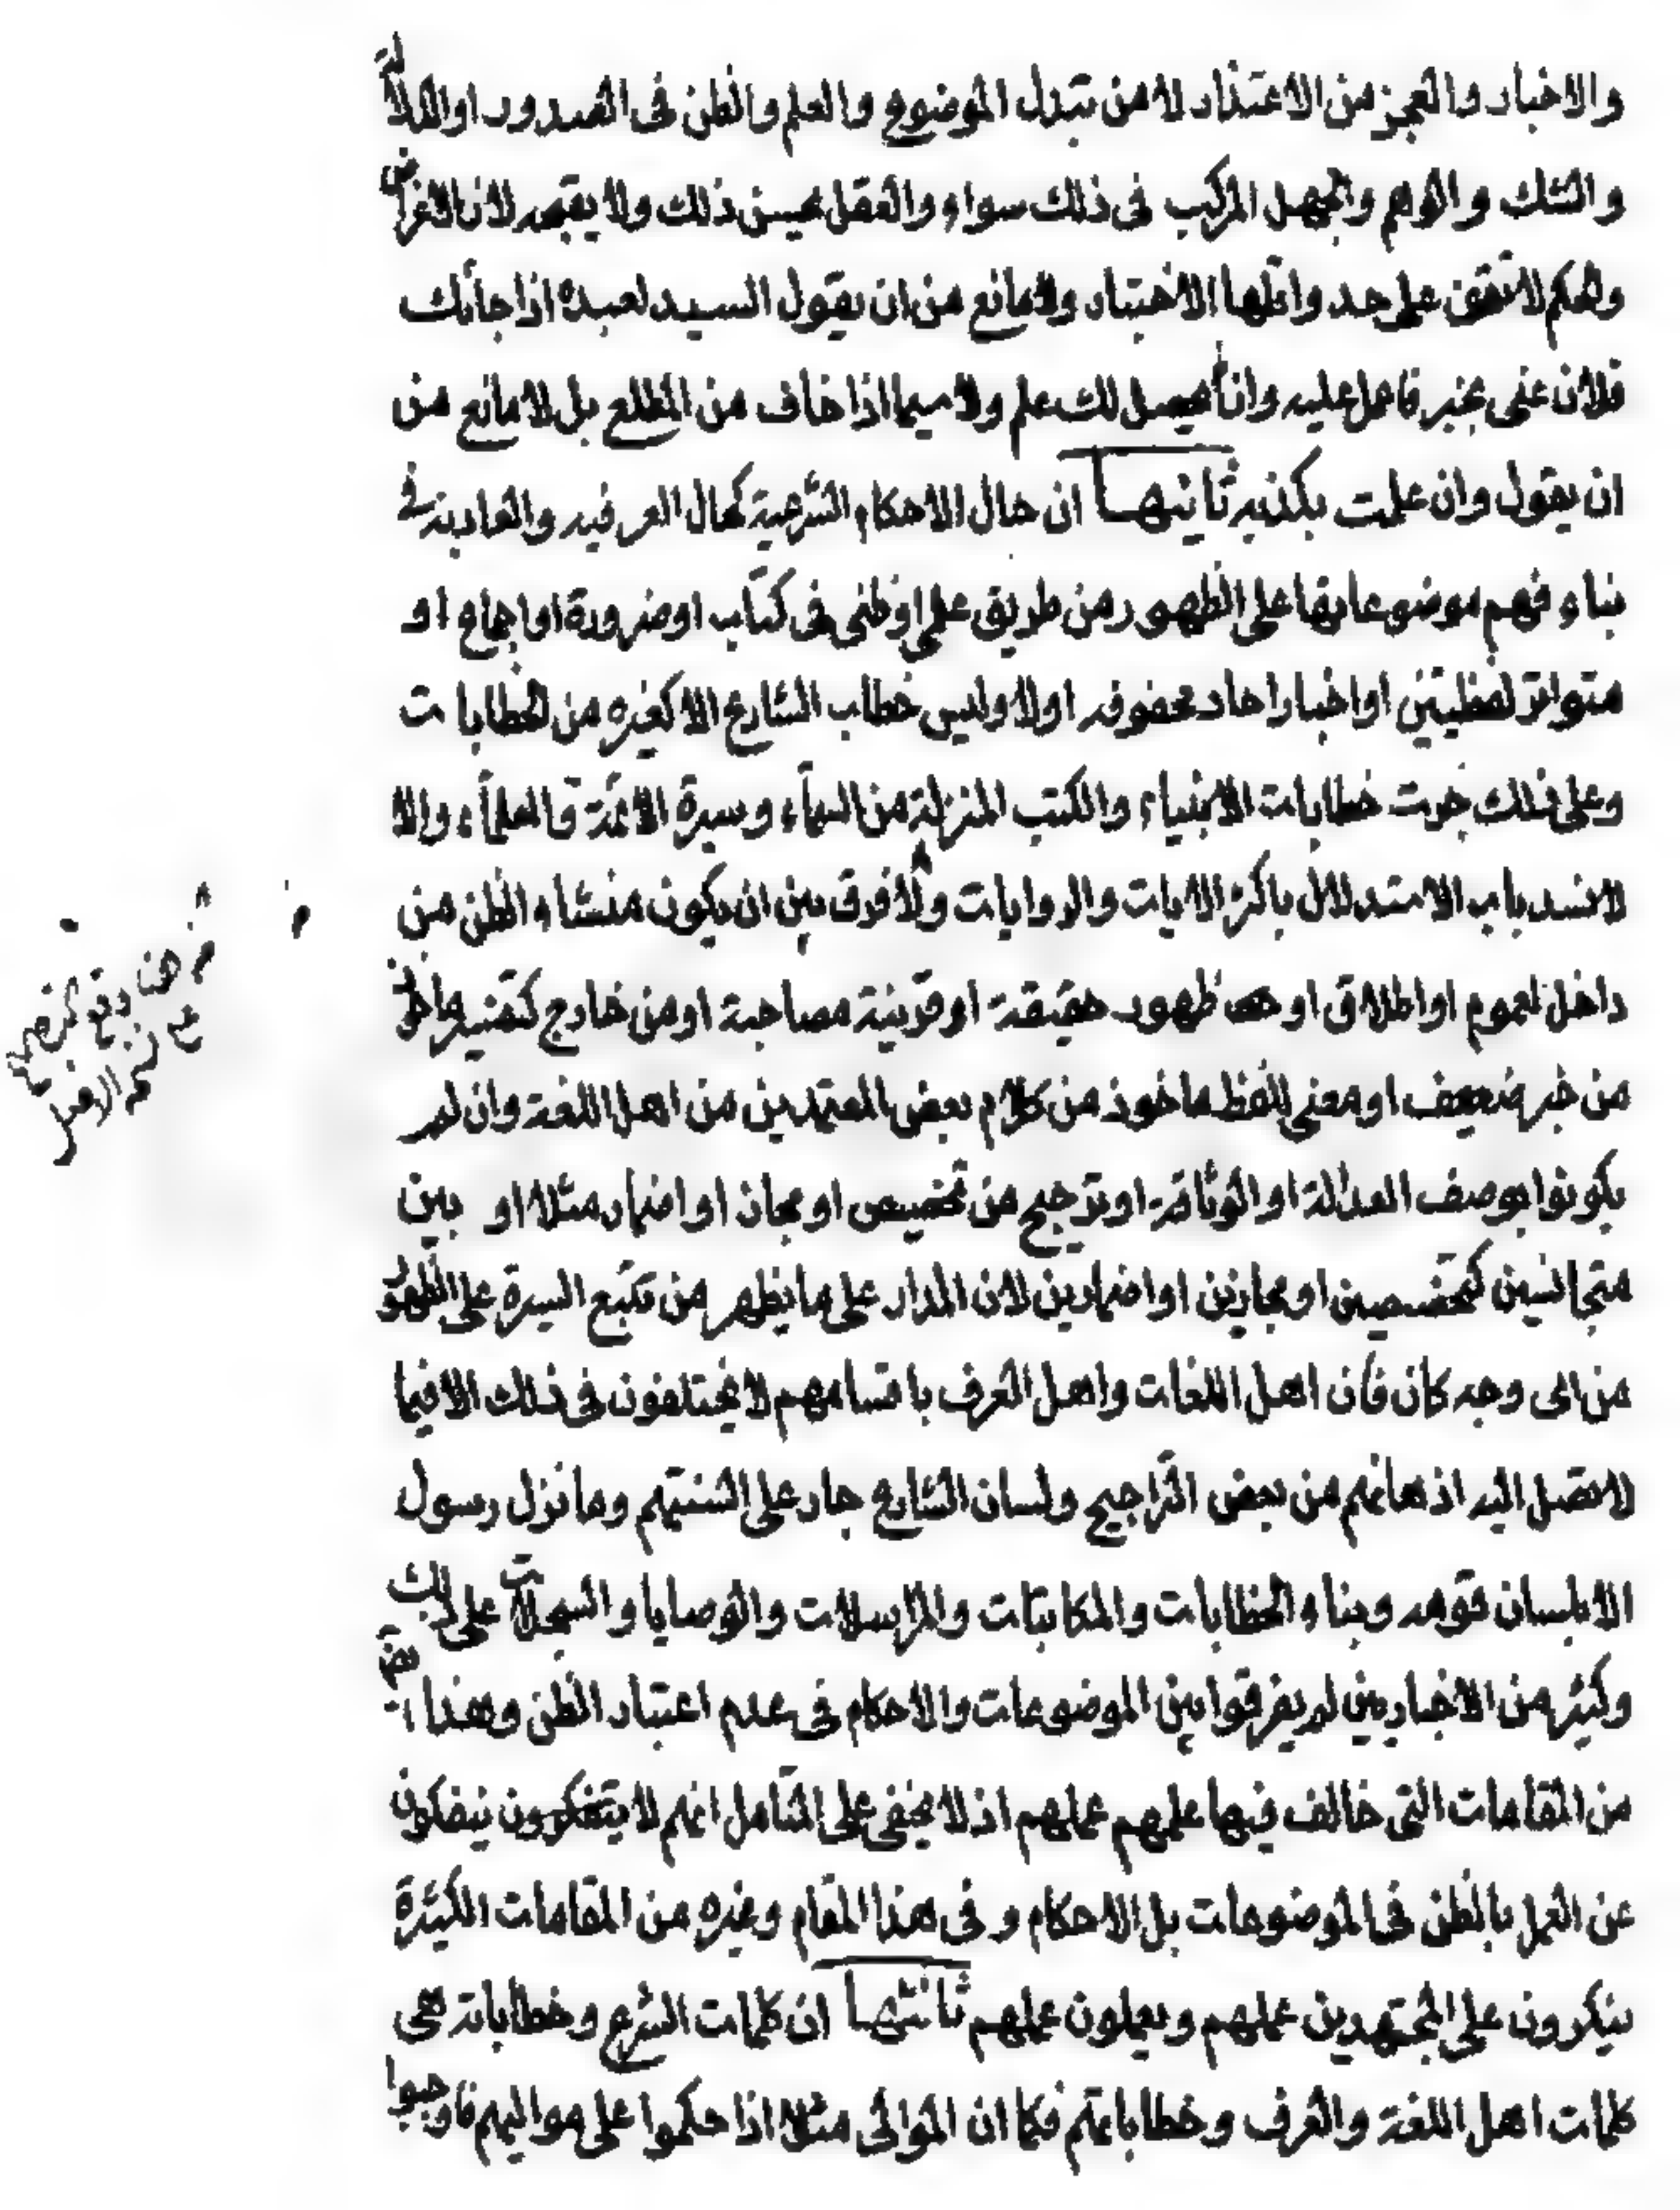 والاخبار والعجز من الاعتذار لا من تبدل الموضوع والعلم والظن فى الصدور او الدلالة
والشك والوهم والجهل المركب فى ذلك سواء والعقل يحسن ذلك ولا يقبحه لان الاغراض
والحكم لا تقف على حد واقلها الاختبار ولا مانع من ان يقول السيد لعبده اذا جائك
فلان عنى بخبر فاعمل عليه وان لم يحصل لك علم ولا سيما اذا خاف من المطلع بل لا مانع من
ان يقول وان علمت بكذبه ثانيها ان حال الاحكام الشرعية كحال العرفيه والعادية فى
بناء فهم موضوعاتها على الظهور من طريق علمى او ظنى فى كتاب او ضرورة او اجماع او
متواتر لفظيتين او اخبار احاد محفوفه او لا وليس خطاب الشارع الا كغيره من الخطابات
وعلى ذلك جرت خطابات الانبياء والكتب المنزلة من السماء وسيرة الائمة والعلماء والا
لانسد باب الاستدلال باكثر الايات والروايات ولا فرق بين ان يكون منشاء الظن من
داخل لعموم او اطلاق او ظهور حقيقة او قرينة مصاحبة او من خارج كتفسير ماخوذ
من خبر ضعيف او معنى للفظ ماخوذ من كلام بعض المعتمدين من اهل اللغة وان لم
يكونوا بوصف العدالة او الوثاقة او ترجيح من تخصيص او مجاز او اضمار مثلا او بين
متجانسين كتخصصين او مجازين او اضمارين لان المدار على ما يظهر من تتبع السيرة على الظهور
من اى وجه كان فان اهل اللغات واهل العرف باقسامهم لا يختلفون فى ذلك الا فيما
لا تصل اليه اذهانهم من بعض التراجيح ولسان الشارع جار على السنتهم وما نزل رسول
الا بلسان قومه وبناء الخطابات والمكاتبات والمراسلات والوصايا والسجلات على ذلك
وكثير من الاخباريين لم يفرقوا بين الموضوعات والاحكام فى عدم اعتبار الظن وهذا ايضا
من المقامات التى خالف فيها علمهم عملهم اذ لا يخفى على المتأمل انهم لا ينفكون
عن العمل بالظن فى الموضوعات بل الاحكام و فى هذا المقام وغيره من المقامات الكثيرة
ينكرون على المجتهدين عملهم ويعملون عملهم ثالثها ان كلمات الشرع وخطاباته على
كلمات اهل اللغة والعرف وخطاباتهم فكما ان الموالى مثلا اذا حكموا على مواليهم فاوجبوا
من هنا وقع